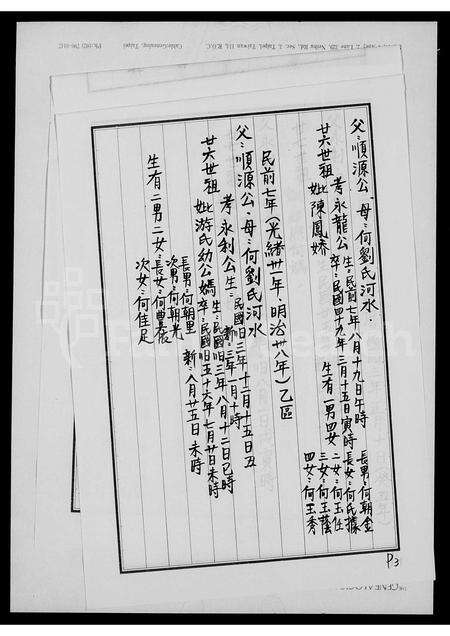 父:順源公、母:何劉氏河水.
廿六世祖 考永龍公 生:民前七年八月十九日午時
卒:民國四十九年三月十五日寅時
妣陳鳳嬌 生有一男四女
長男:何朝金
長女:何氏據
二女:何玉任
三女:何玉蔭
四女:何玉秀
民前七年(光緒卅一年、明治卅八年)乙區
父:順源公、母:何劉氏河水
廿六世祖 考永利公生:民國旧三年十二月十五日丑
新:三年一月十時
妣游氏幼公媽 生:民國旧三年八月十二日巳時
卒:民國旧五十六年七月廿日未時
新:八月廿五日未時
生有二男二女
長男:何朝里
次男:何朝光
長女:何
次女:何佳足
P3